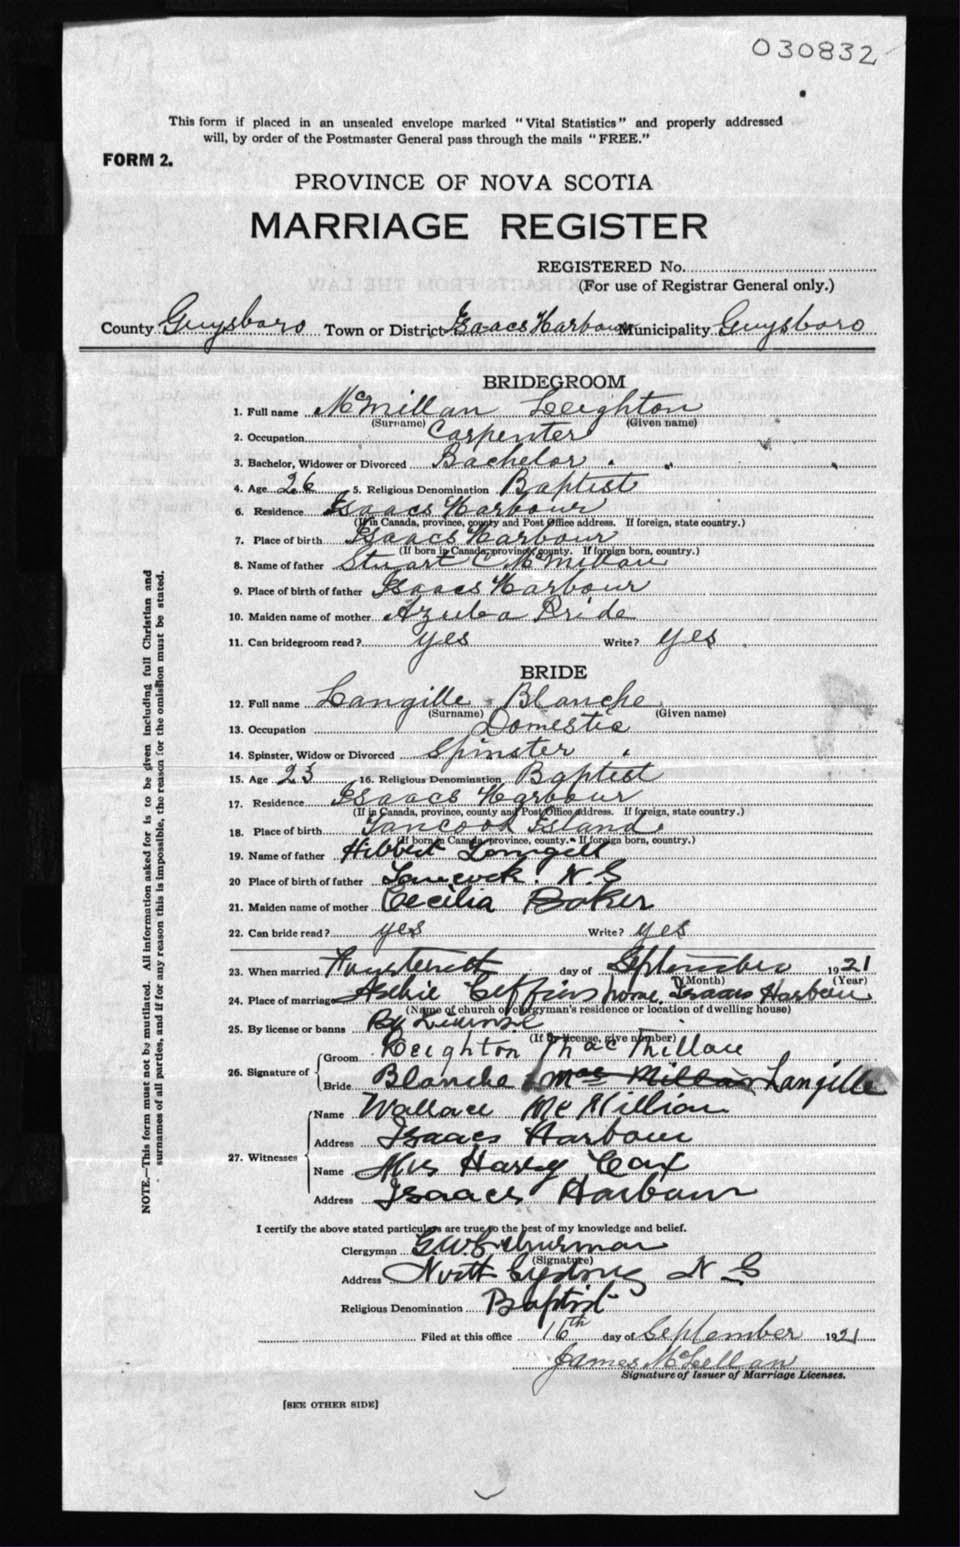 030832
This form if placed in an unsealed envelope marked "Vital Statistics" and properly addressed
will, by order of the Postmaster General pass through the mails "FREE."
FORM 2.
PROVINCE OF NOVA SCOTIA
MARRIAGE REGISTER
REGISTERED No.
(For use of Registrar General only.)
County Guysboro Town or District Isaacs Harbour Municipality Guysboro
BRIDEGROOM
1. Full name McMillan Leighton
(Surname) (Given name)
2. Occupation Carpenter
3. Bachelor, Widower or Divorced Bachelor
4. Age 26 5. Religious Denomination Baptist
6. Residence Isaacs Harbour
(If in Canada, province, county and Post Office address. If foreign, state country.)
7. Place of birth Isaacs Harbour
(If born in Canada, province, county. If foreign born, country.)
8. Name of father Stuart C McMillan
9. Place of birth of father Isaacs Harbour
10. Maiden name of mother Azuba Pride
11. Can bridegroom read? yes Write? yes
BRIDE
12. Full name Langille Blanche
(Surname) (Given name)
13. Occupation Domestic
14. Spinster, Widow or Divorced Spinster
15. Age 23 16. Religious Denomination Baptist
17. Residence Isaacs Harbour
(If in Canada, province, county and Post Office address. If foreign, state country.)
18. Place of birth Tancook Island
(If born in Canada, province, county. If foreign born, country.)
19. Name of father Hibbert Langell
20 Place of birth of father Tancock N.S
21. Maiden name of mother Cecilia Baker
22. Can bride read? yes Write? yes
23. When married day of September 1921
(Month) (Year)
24. Place of marriage Giffins home Isaacs Harbour
(Name of church or clergyman's residence or location of dwelling house)
25. By license or banns By License
(If by license, give number)
26. Signature of
Groom Leighton MacMillan
Bride Blanche Mac Millan Langille
27. Witnesses
Name Wallace McMillian
Address Isaacs Harbour
Name Mrs Harry Cox
Address Isaacs Harbour
I certify the above stated particulars are true to the best of my knowledge and belief.
Clergyman
(Signature)
Address North Sydney N S
Religious Denomination Baptist
Filed at this office 16th day of September 1921
James McLellan
Signature of Issuer of Marriage Licenses.
[SEE OTHER SIDE]
NOTE.—This form must not be mutilated. All information asked for is to be given including full Christian and
surnames of all parties, and if for any reason this is impossible, the reason for the omission must be stated.